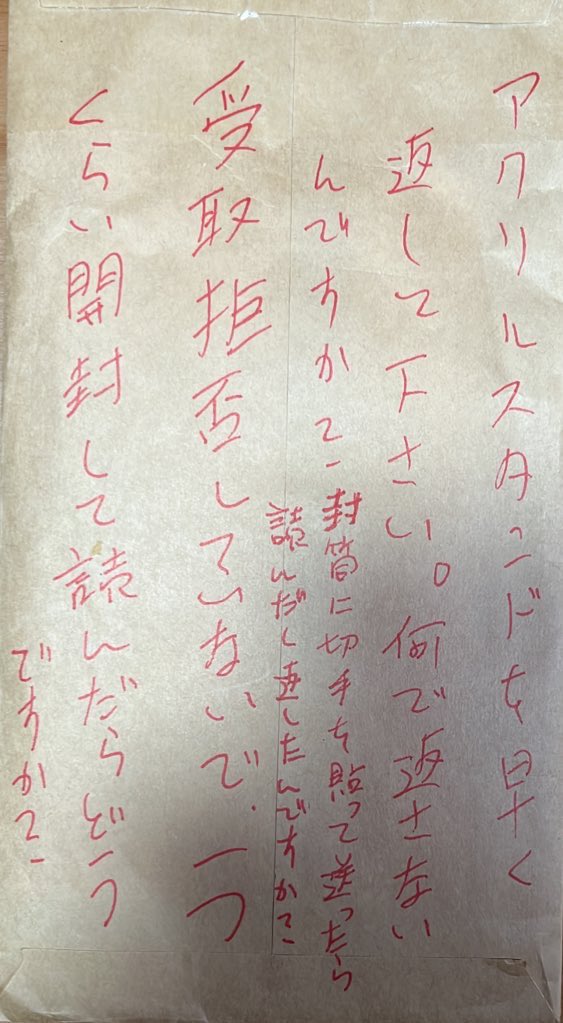 アクリルスタンドを早く
返して下さい。何で返さない
んですか?
封筒に切手を貼って送ったら
読んだく返したんですか?
受取拒否していないで、一つ
くらい開封して読んだらどう
ですか?